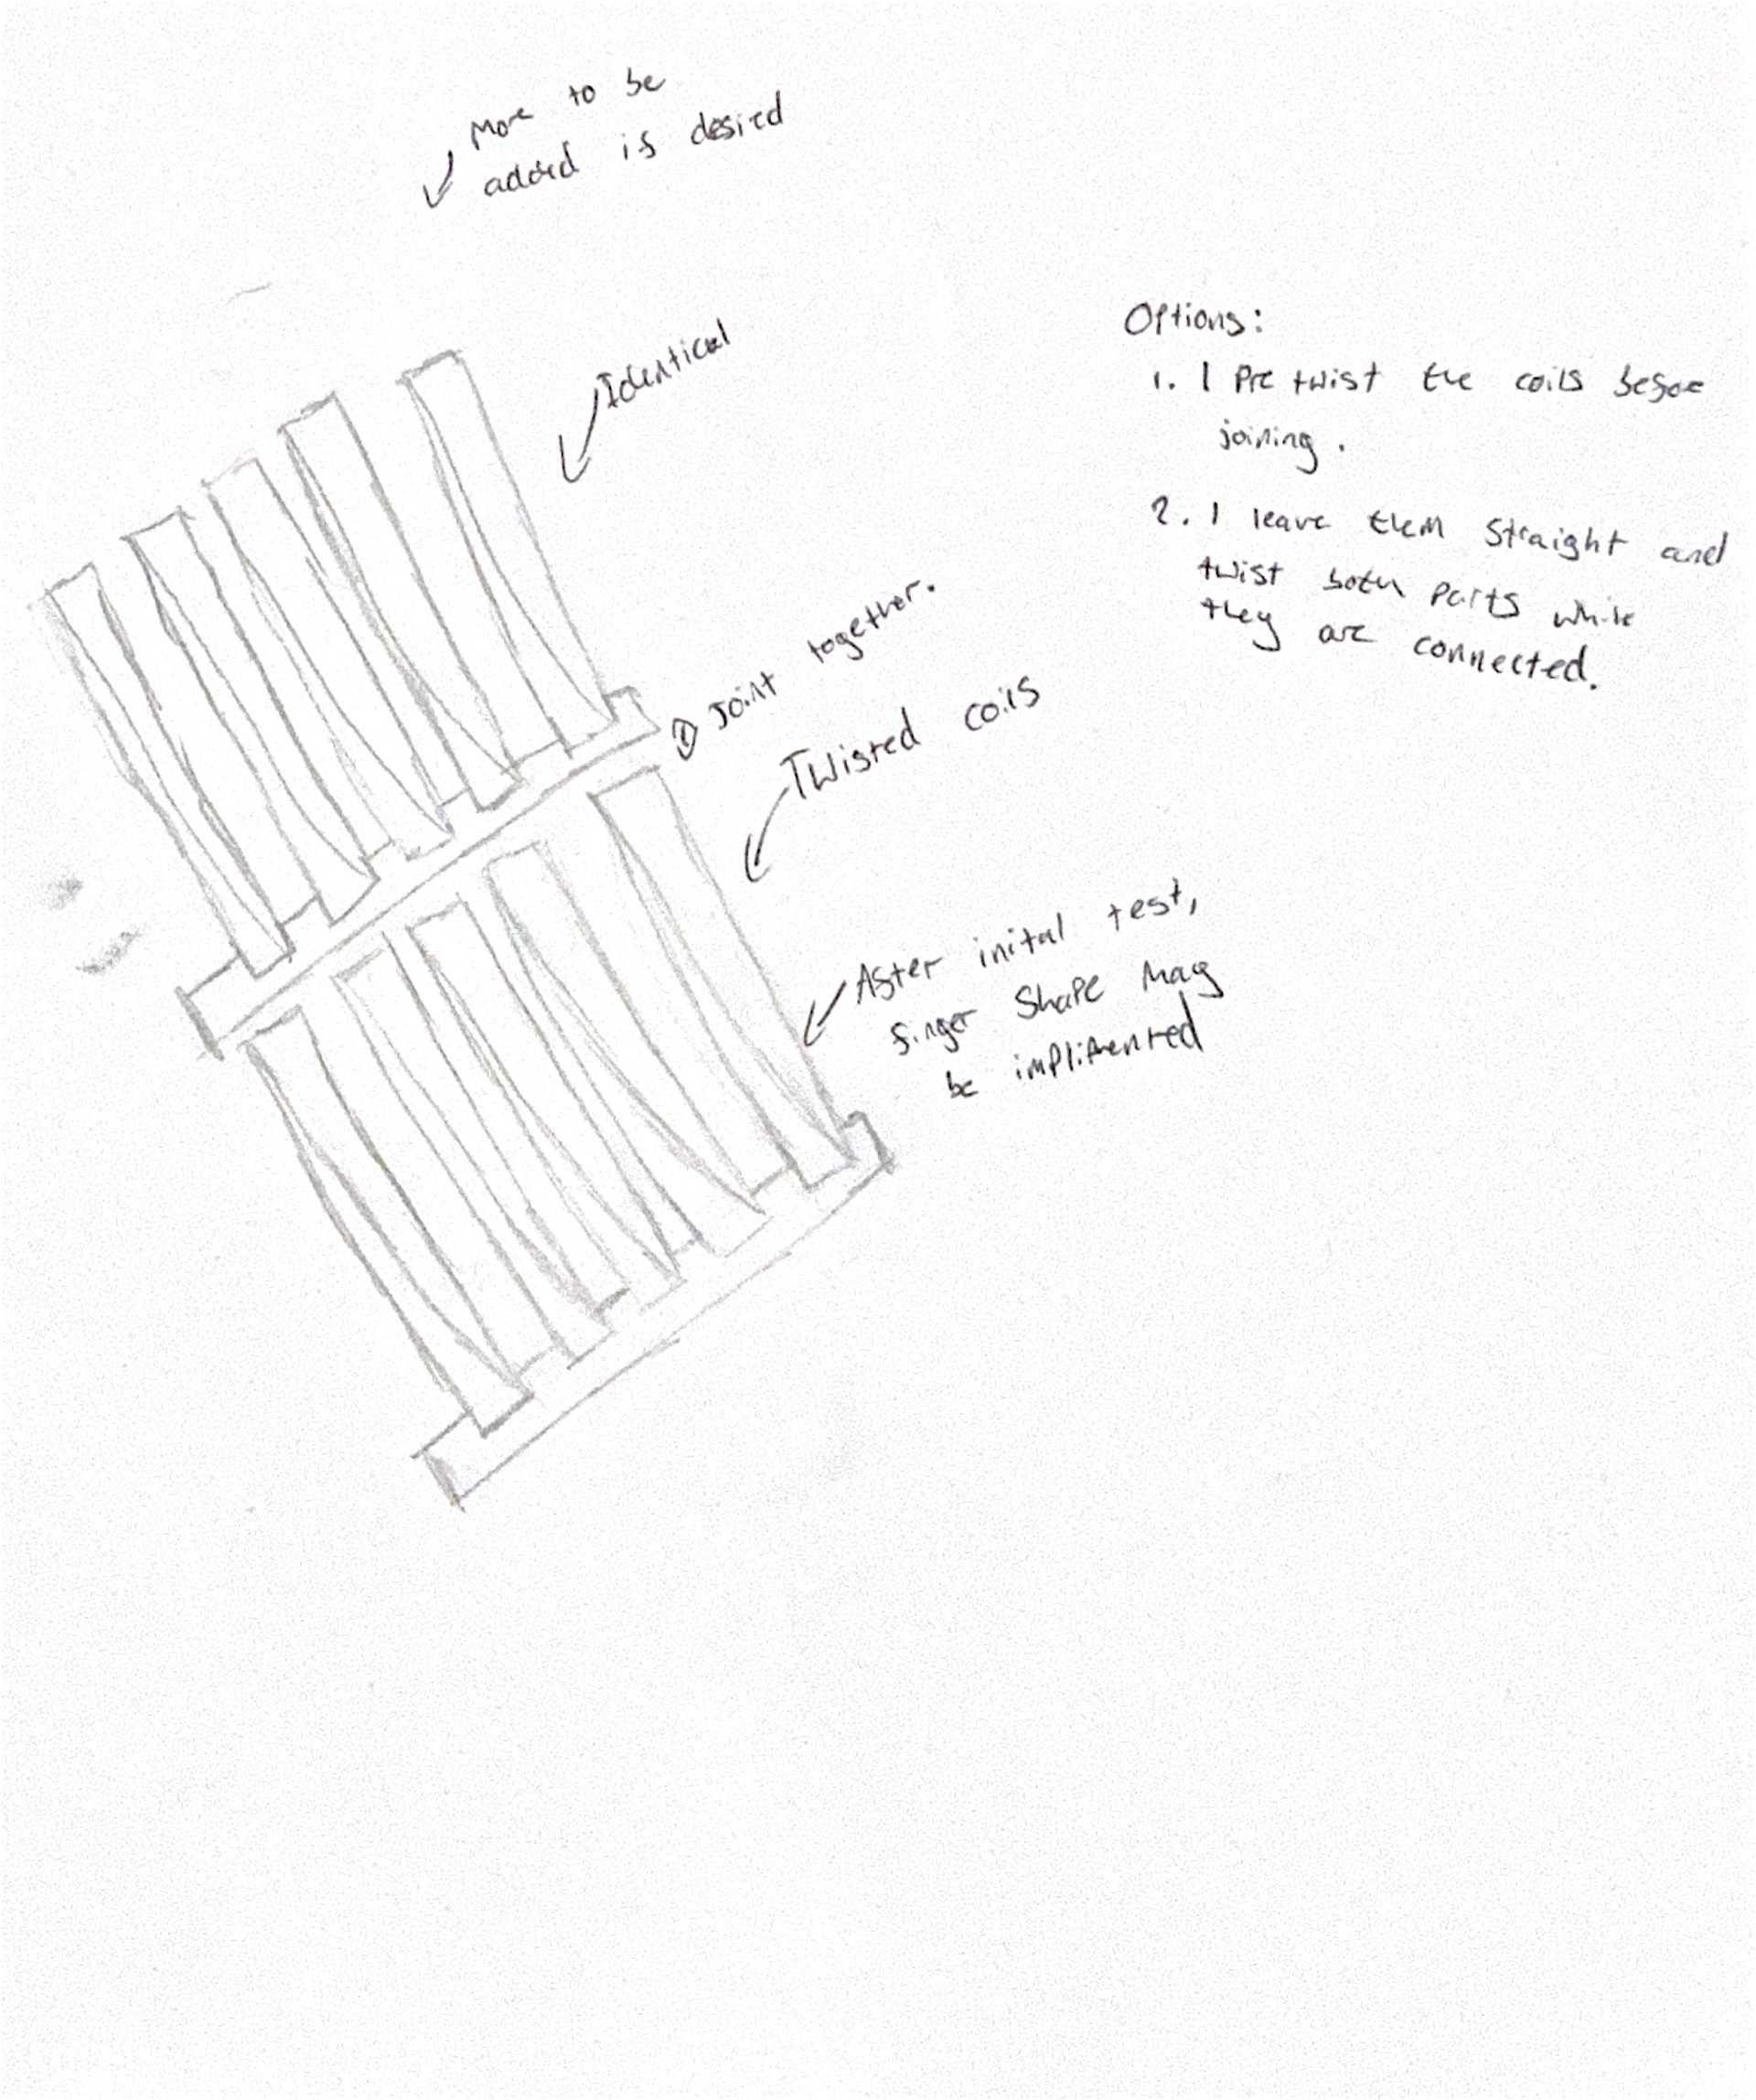 More to be
added if desired
Identical
① Joint together.
Twisted coils
After inital test,
finger shape may
be implimented
Options:
1. I pre twist the coils before
joining.
2. I leave them straight and
twist both parts while
they are connected.